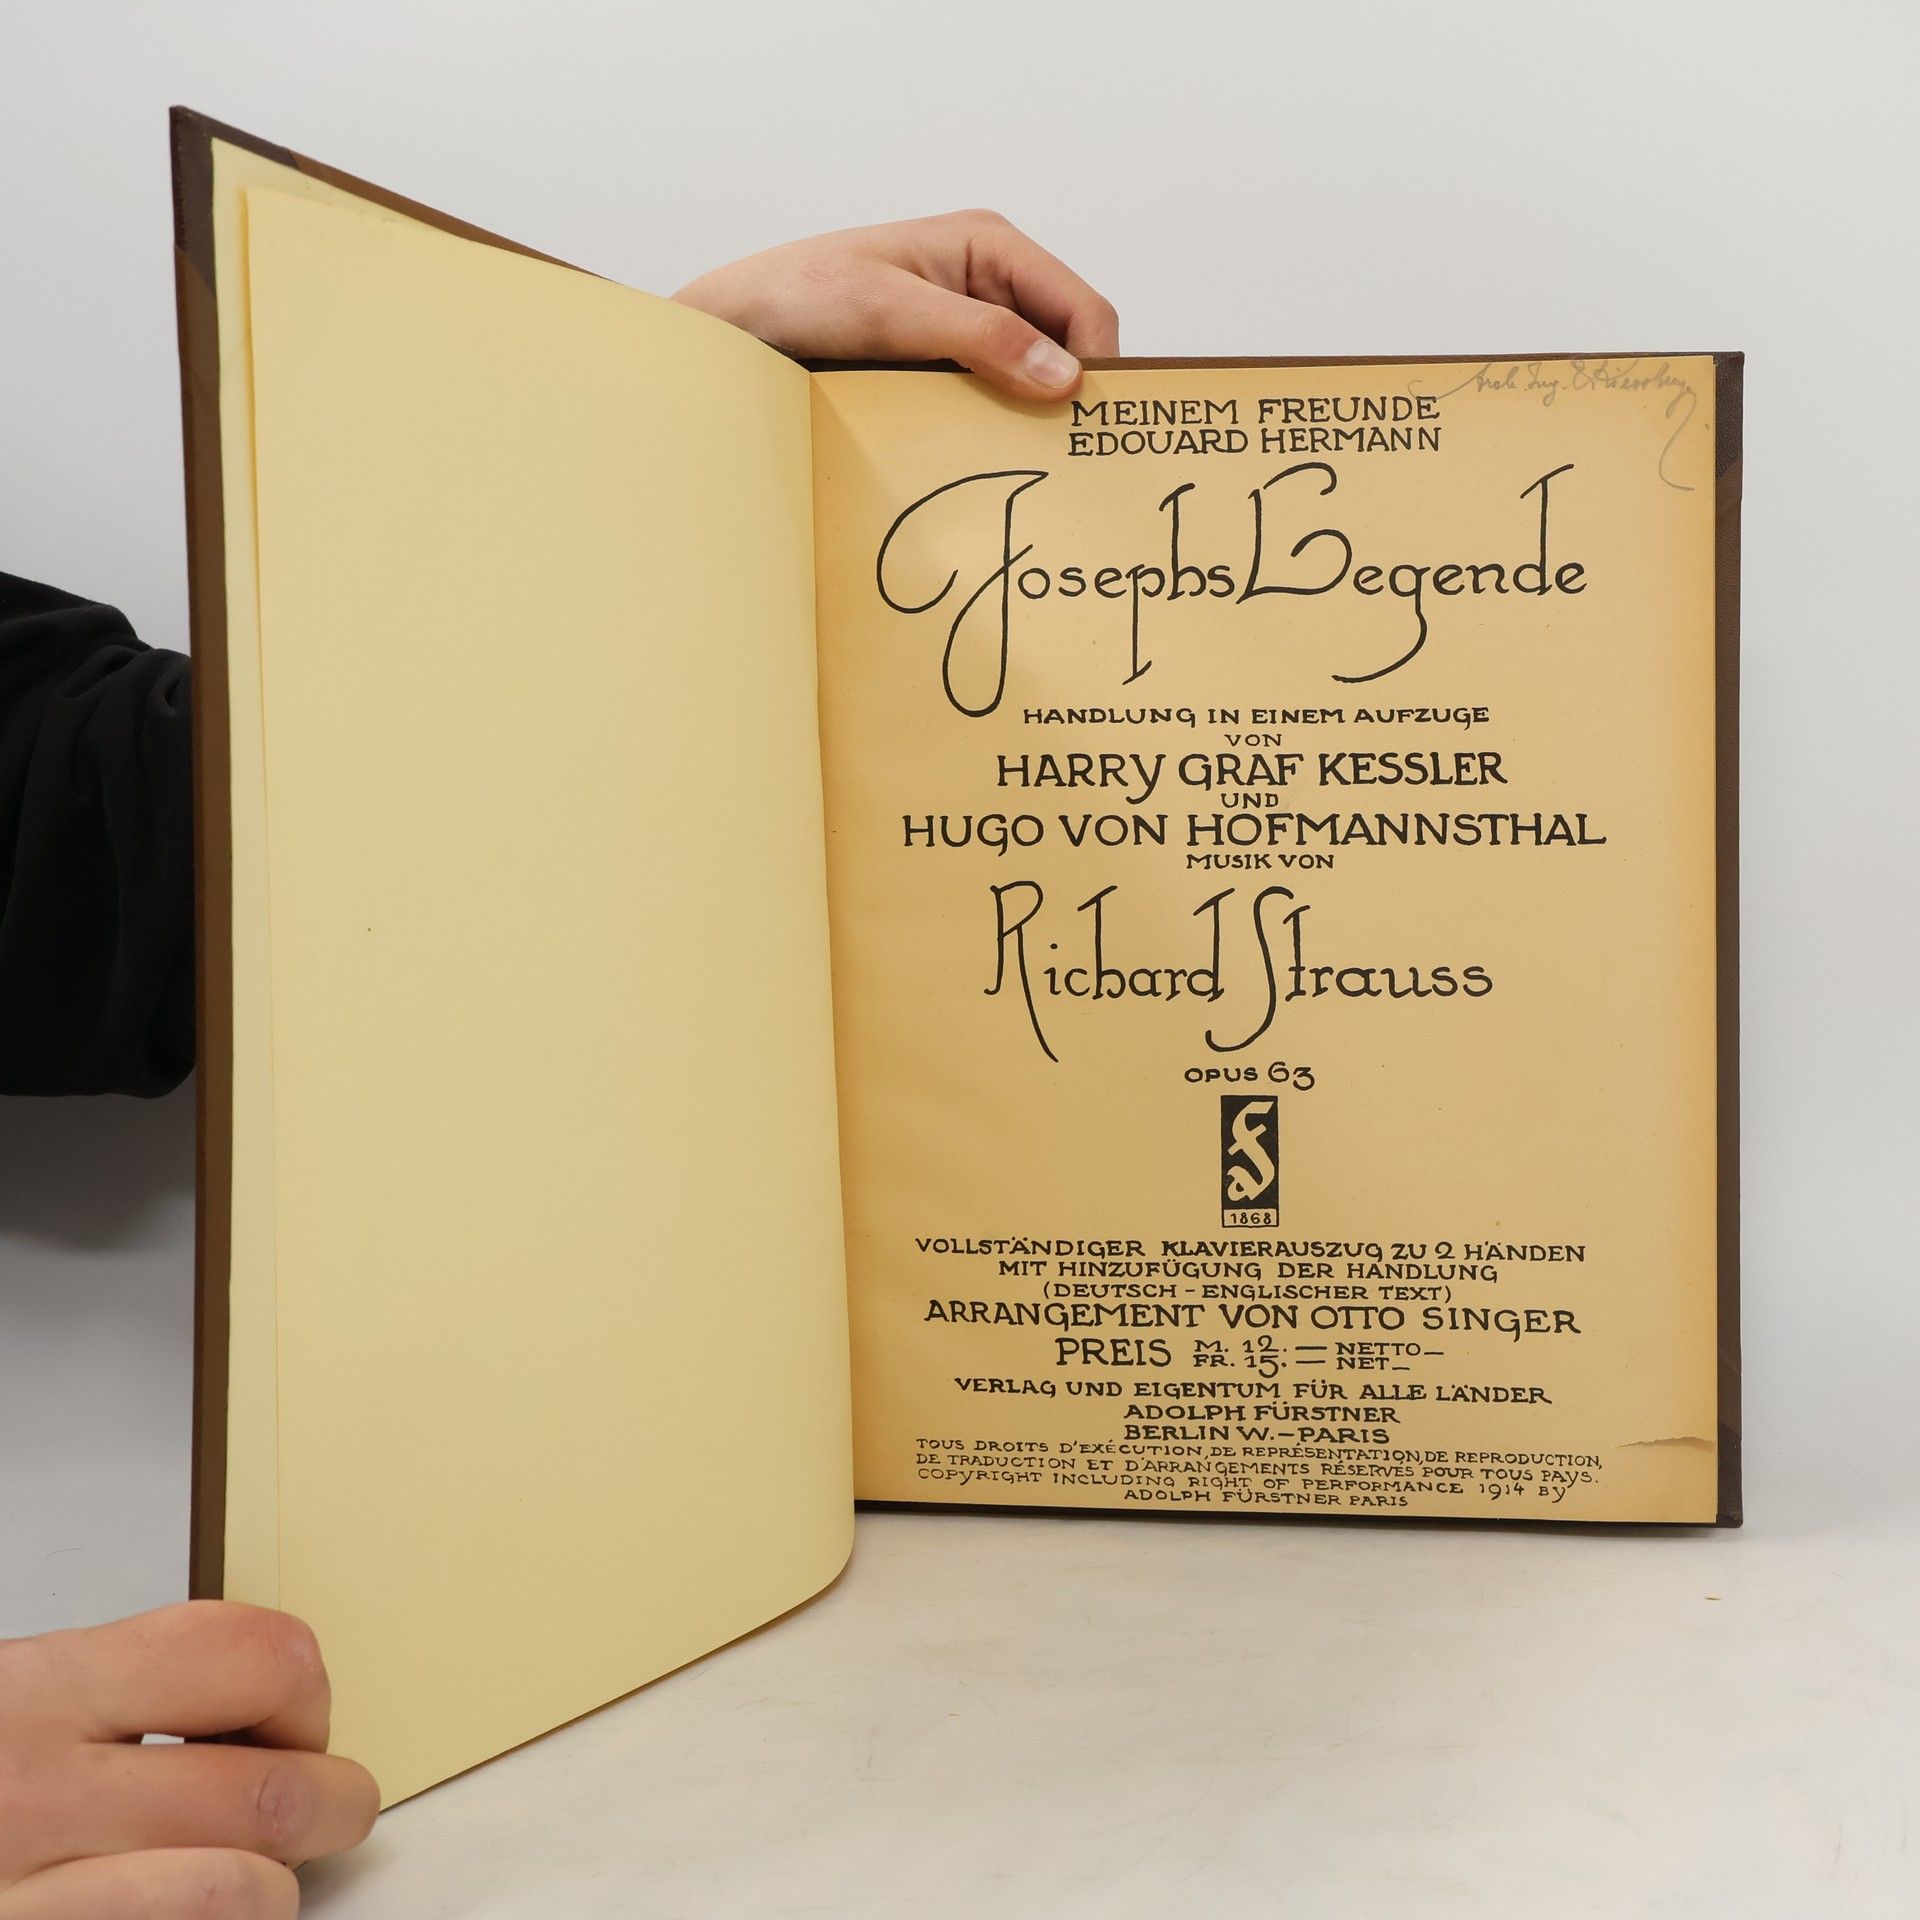 Arch. Ing.
MEINEM FREUNDE
EDOUARD HERMANN
Josephs Legende
HANDLUNG IN EINEM AUFZUGE
VON
HARRY GRAF KESSLER
UND
HUGO VON HOFMANNSTHAL
MUSIK VON
Richard Strauss
OPUS 63
1868
VOLLSTÄNDIGER KLAVIERAUSZUG ZU 2 HÄNDEN
MIT HINZUFÜGUNG DER HANDLUNG
(DEUTSCH - ENGLISCHER TEXT)
ARRANGEMENT VON OTTO SINGER
PREIS M. 12. — NETTO —
FR. 15. — NET —
VERLAG UND EIGENTUM FÜR ALLE LÄNDER
ADOLPH FÜRSTNER
BERLIN W. — PARIS
TOUS DROITS D'EXÉCUTION, DE REPRÉSENTATION, DE REPRODUCTION,
DE TRADUCTION ET D'ARRANGEMENTS RÉSERVÉS POUR TOUS PAYS.
COPYRIGHT INCLUDING RIGHT OF PERFORMANCE 1914 BY
ADOLPH FÜRSTNER PARIS